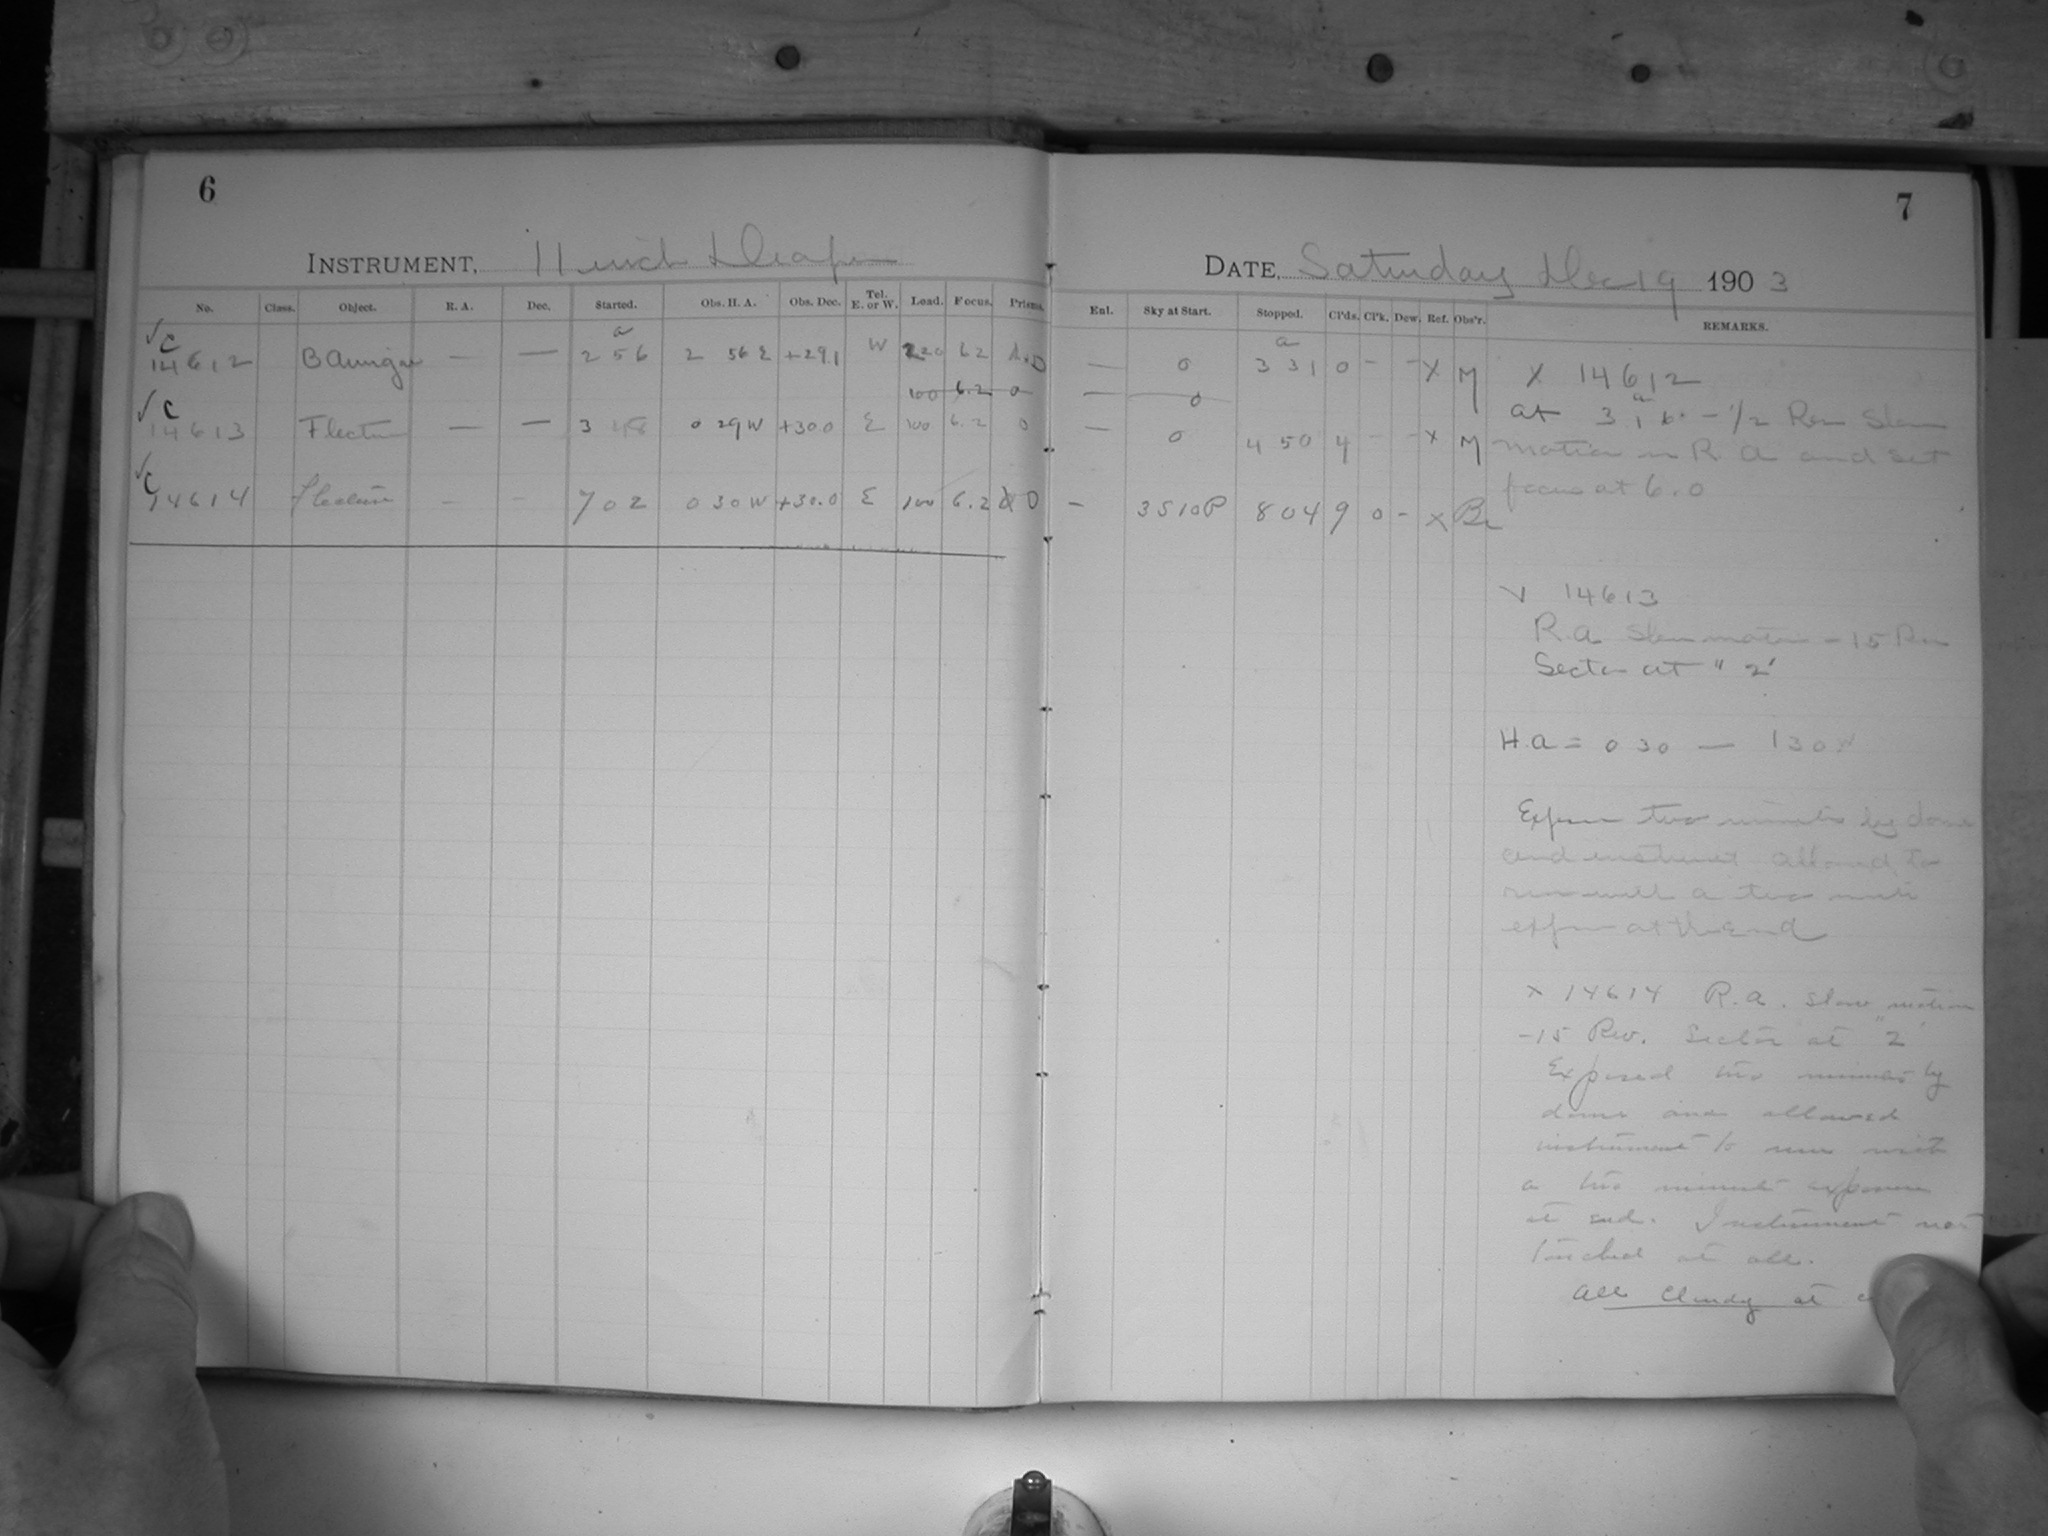 6
INSTRUMENT, 11 inch Draper
No. Class. Object. R. A. Dec. Started. Obs. H. A. Obs. Dec. Tel. E. or W. Load. Focus. Prisms.
a
√ C
14612 B Aurigae — — 2 56 2 56 E +29.1 W 220 62
100 6.2 0
√ C
14613 Flectric — — 3 48 0 29 W +30 0 E 100 6.2 0
√ C
14614 - - 7 02 0 30 W +30.0 E 100 6.2 0
7
DATE, Saturday Dec 19 1903
Enl. Sky at Start. Stopped. Cl'ds. Cl'k. Dew. Ref. Obs'r. REMARKS.
a
— 0 3 31 0 - - X M
— 0
— 0 4 50 4 - - X M
- 3510P 804 9 0 - X Br
X 14612
at 3 16 - 1/2 Rev Slow
motion in R A and set
focus at 6.0
14613
R.a Slow motion - 15 Rev
Sector at "2"
H.a = 0 30 — 1 30 W
two minutes by dome
and allowed to
run with a two minute
at the end
x 14614 R.a. slow motion
-15 Rev. Sector at "2"
Exposed two minutes by
dome and allowed
instrument to run with
a two minute exposure
at end. Instrument not
touched at all.
All Cloudy at